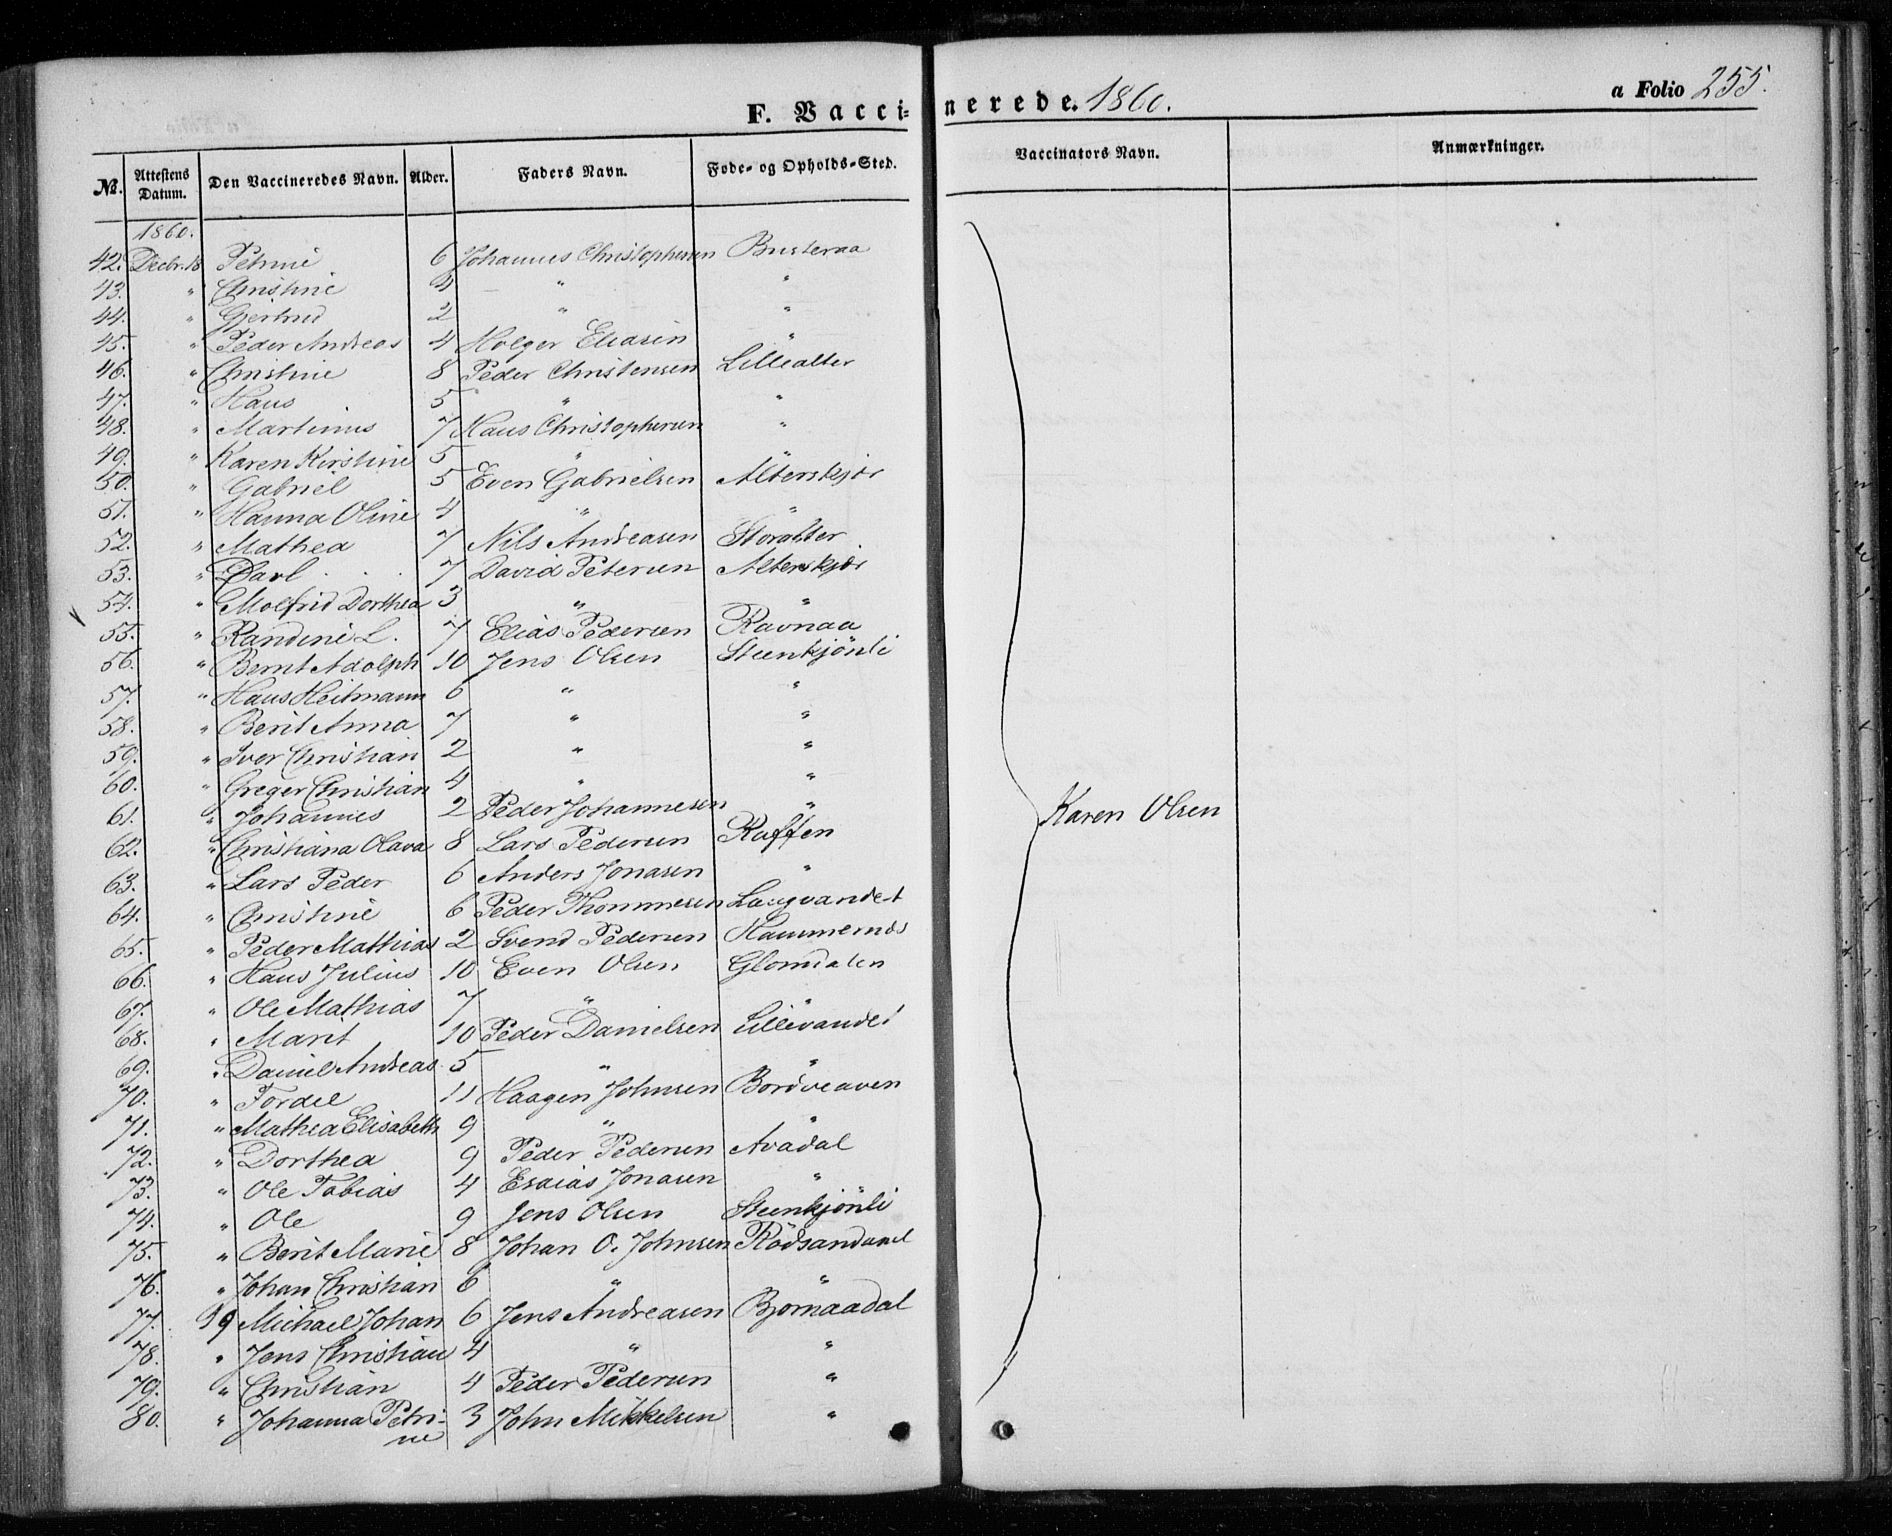 F. Vaccinerede. 1860. a Folio 255.
№. Attestens Datum. Den Vaccineredes Navn. Alder. Faders Navn. Føde- og Opholds-Sted. Vaccinators Navn. Anmærkninger.
1860.
42. Decbr. 18 Petrine 6 Johannes Christophersen Busteraa
43. " Christine 4 " "
44. " Gjertrud 2 " "
45. " Peder Andreas 4 Holger Eliasen "
46. " Christine 8 Peder Christensen Lillealter
47. " Hans 5 " "
48. " Martinus 7 Hans Christophersen "
49. " Karen Kirstine 5 " "
50. " Gabriel 5 Even Gabrielsen Alterskjær
51. " Hanna Oline 4 " "
52. " Mathea 7 Nils Andreasen Storalter
53. " Carl 7 David Petersen Alterskjær
54. " Molfrid Dorthea 3 " "
55. " Randine L. 7 Elias Pedersen Ravnaa
56. " Bernt Adolph 10 Jens Olsen Steenkjønli
57. " Hans Heitmann 6 " "
58. " Berit Anna 7 " "
59. " Iver Christian 2 " "
60. " Greger Christian 4 " "
61. " Johannes 2 Peder Johannesen "
62. " Christiana Olava 8 Lars Pedersen Røffen
63. " Lars Peder 6 Anders Jonasen "
64. " Christine 6 Peder Thommesen Langvandet
65. " Peder Mathias 2 Svend Pedersen Hammernæs
66. " Hans Julius 10 Even Olsen Glomdalen
67. " Ole Mathias 7 " "
68. " Marit 10 Peder Danielsen Lillevandet
69. " Daniel Andreas 5 " "
70. " Tordel 11 Haagen Johnsen Bordveaven
71. " Mathea Elisabeth 9 "
72. " Dorthea 9 Peder Pedersen Avadal
73. " Ole Tobias 4 Esaias Jonasen "
74. " Ole 9 Jens Olsen Steenkjønli
75. " Berit Marie 8 Johan O. Johnsen Rødsandaml
76. " Johan Christian 6 " "
77. 19 Michael Johan 6 Jens Andreasen Bjørnaadal
78. " Jens Christian 4 " "
79. " Christian 4 Peder Pedersen "
80. " Johanna Petri- 3 John Mikkelsen "
ne
Karen Olsen